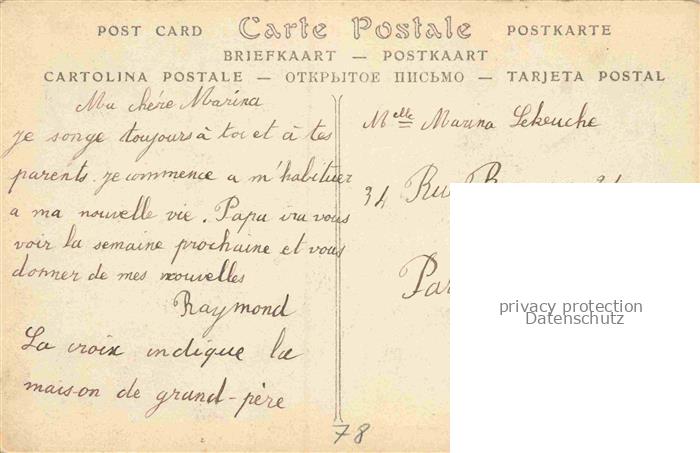 POST CARD Carte Postale POSTKARTE
BRIEFKAART — POSTKAART
CARTOLINA POSTALE — ОТКРЫТОЕ ПИСЬМО — TARJETA POSTAL
Ma chére Marina
je songe toujours à toi et à tes
parents. je commence a m'habituer
a ma nouvelle vie. Papa ira vous
voir la semaine prochaine et vous
donner de mes nouvelles
Raymond
La croix indique la
maison de grand-père
Melle Marina Lekeuche
34 Rue
Par
78
privacy protection
Datenschutz